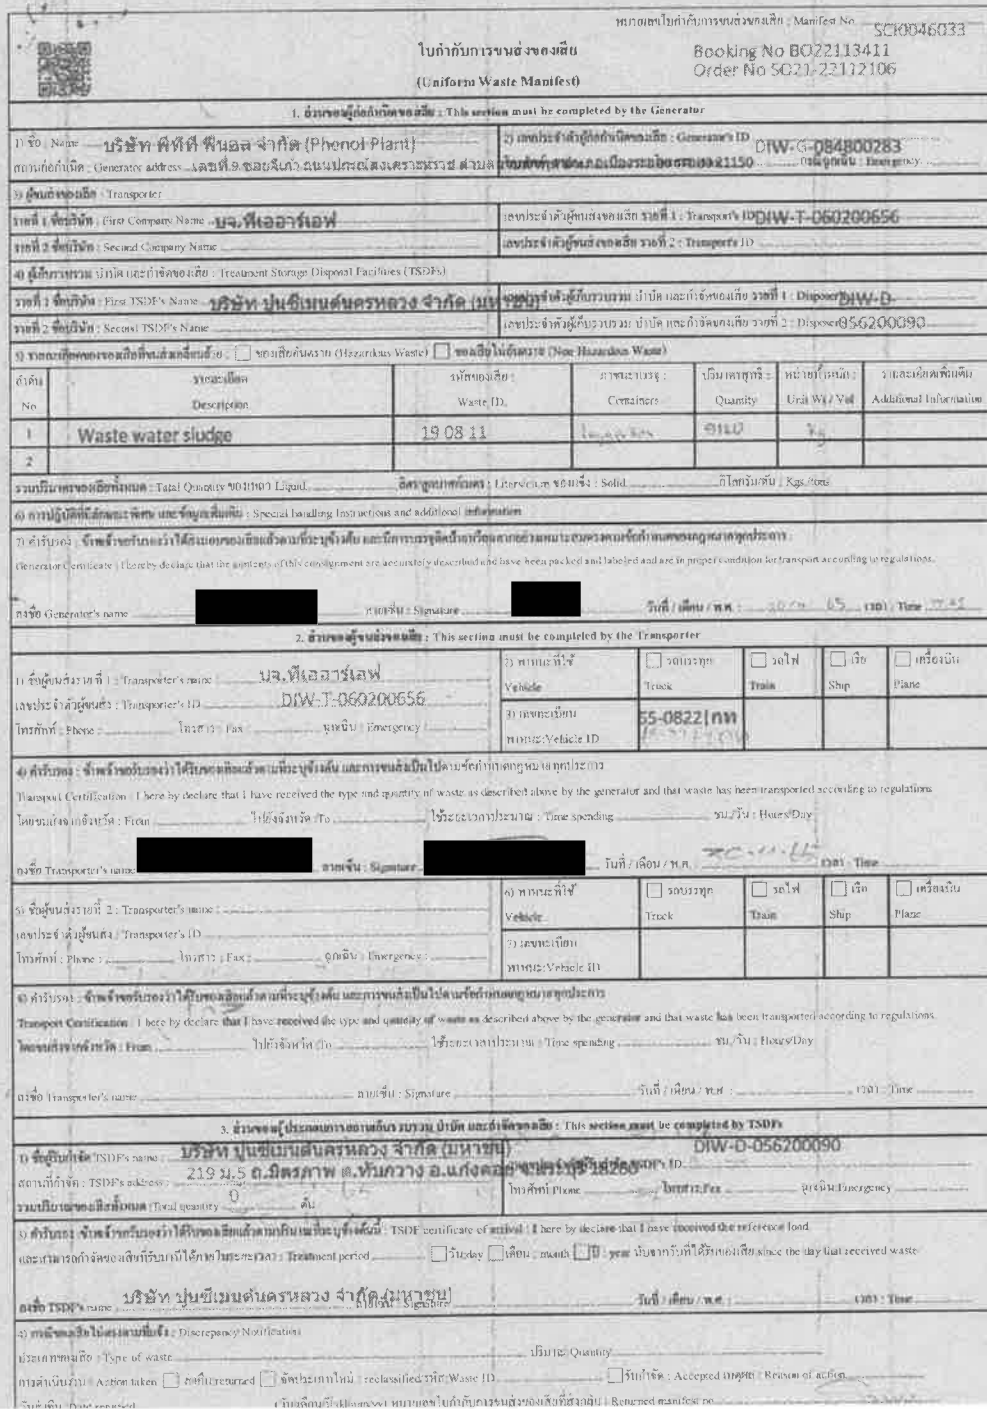 หมายเลขใบกำกับการขนส่งของเสีย : Manifest No. SCI0046033
ใบกำกับการขนส่งของเสีย
Booking No BO22113411
(Uniform Waste Manifest)
Order No SO21-22112106
1. ส่วนของผู้ก่อกำเนิดของเสีย : This section must be completed by the Generator
1) ชื่อ : Name บริษัท พีทีที ฟีนอล จำกัด (Phenol Plant)
2) เลขประจำตัวผู้ก่อกำเนิดของเสีย : Generator's ID DIW-G-084800283
สถานก่อกำเนิด : Generator address เลขที่ 9 ซอยจีเก้า ถนนปกรณ์สงเคราะห์ราษฎร์ 21150 กรณีฉุกเฉิน : Emergency
3) ผู้ขนส่งของเสีย : Transporter
รายที่ 1 ชื่อบริษัท : First Company Name บจ.ทีเออาร์เอฟ
เลขประจำตัวผู้ขนส่งของเสีย รายที่ 1 : Transport's ID DIW-T-060200656
รายที่ 2 ชื่อบริษัท : Second Company Name
เลขประจำตัวผู้ขนส่งของเสีย รายที่ 2 : Transport's ID
4) ผู้เก็บรวบรวม บำบัด และกำจัดของเสีย : Treatment Storage Disposal Facilities (TSDFs)
รายที่ 1 ชื่อบริษัท : First TSDF's Name บริษัท ปูนซีเมนต์นครหลวง จำกัด (มหาชน)
เลขประจำตัวผู้เก็บรวบรวม บำบัด และกำจัดของเสีย รายที่ 1 : Disposer DIW-D-
รายที่ 2 ชื่อบริษัท : Second TSDF's Name
เลขประจำตัวผู้เก็บรวบรวม บำบัด และกำจัดของเสีย รายที่ 2 : Disposer 056200090
5) รายละเอียดของของเสียที่ขนส่งเคลื่อนย้าย : ของเสียอันตราย (Hazardous Waste) ของเสียไม่อันตราย (Non-Hazardous Waste)
ลำดับ รายละเอียด รหัสของเสีย : ภาชนะบรรจุ : ปริมาตรสุทธิ : หน่วยน้ำหนัก : รายละเอียดเพิ่มเติม
No. Description Waste ID. Containers Quantity Unit Wt / Vol Additional Information
1 Waste water sludge 19 08 11 Kg
2
รวมปริมาตรของเสียทั้งหมด : Total Quantity ของเหลว Liquid ลิตร/ลูกบาศก์เมตร : Liter/cu.m ของแข็ง : Solid กิโลกรัม/ตัน : Kgs./tons
6) การปฏิบัติที่มีลักษณะพิเศษ และข้อมูลเพิ่มเติม : Special handling Instructions and additional information
7) คำรับรอง : ข้าพเจ้าขอรับรองว่าได้ส่งมอบของเสียแล้วตามที่ระบุข้างต้น
Generator Certificate : I hereby declare that the contents of this consignment are accurately described and have been packed and labeled and are in proper condition for transport according to regulations.
ลงชื่อ Generator's name ลายเซ็น : Signature วันที่ / เดือน / พ.ศ. : 65 เวลา : Time
2. ส่วนของผู้ขนส่งของเสีย : This section must be completed by the Transporter
1) ชื่อผู้ขนส่งรายที่ 1 : Transporter's name บจ.ทีเออาร์เอฟ
2) พาหนะที่ใช้ Vehicle รถบรรทุก Truck รถไฟ Train เรือ Ship เครื่องบิน Plane
เลขประจำตัวผู้ขนส่ง : Transporter's ID DIW-T-060200656
3) เลขทะเบียน พาหนะ:Vehicle ID 55-0822|กท
โทรศัพท์ : Phone : โทรสาร : Fax ฉุกเฉิน : Emergency
4) คำรับรอง : ข้าพเจ้าขอรับรองว่าได้รับของเสียแล้วตามที่ระบุข้างต้น และการขนส่งเป็นไปตามข้อกำหนดกฎหมายทุกประการ
Transport Certification : I here by declare that I have received the type and quantity of waste as described above by the generator and that waste has been transported according to regulations.
โดยขนส่งจากจังหวัด : From ไปยังจังหวัด :To ใช้ระยะเวลาประมาณ : Time spending ชม./วัน : Hours/Day
ลงชื่อ Transporter's name ลายเซ็น : Signature วันที่ / เดือน / พ.ศ. เวลา : Time
5) ชื่อผู้ขนส่งรายที่ 2 : Transporter's name :
6) พาหนะที่ใช้ Vehicle รถบรรทุก Truck รถไฟ Train เรือ Ship เครื่องบิน Plane
เลขประจำตัวผู้ขนส่ง : Transporter's ID
โทรศัพท์ : Phone : โทรสาร : Fax : ฉุกเฉิน : Emergency :
7) เลขทะเบียน พาหนะ:Vehicle ID
8) คำรับรอง : ข้าพเจ้าขอรับรองว่าได้รับของเสียแล้วตามที่ระบุข้างต้น และการขนส่งเป็นไปตามข้อกำหนดกฎหมายทุกประการ
Transport Certification : I here by declare that I have received the type and quantity of waste as described above by the generator and that waste has been transported according to regulations.
โดยขนส่งจากจังหวัด : From ไปยังจังหวัด :To ใช้ระยะเวลาประมาณ : Time spending ชม./วัน : Hours/Day
ลงชื่อ Transporter's name ลายเซ็น : Signature วันที่ / เดือน / พ.ศ. : เวลา : Time
3. ส่วนของผู้ประกอบการสถานเก็บรวบรวม บำบัด และกำจัดของเสีย : This section must be completed by TSDFs
1) ชื่อผู้รับกำจัด TSDF's name : บริษัท ปูนซีเมนต์นครหลวง จำกัด (มหาชน) DIW-D-056200090
สถานที่กำจัด : TSDF's address : 219 ม.5 ถ.มิตรภาพ ต.ทับกวาง อ.แก่งคอย จ.สระบุรี 18260 TSDF's ID
โทรศัพท์ Phone โทรสาร:Fax ฉุกเฉิน:Emergency
รวมปริมาณของเสียทั้งหมด :Total quantity 0 ตัน
3) คำรับรอง :ข้าพเจ้าขอรับรองว่าได้รับของเสียแล้วตามปริมาณที่ระบุข้างต้นนี้ : TSDF certificate of arrival : I here by declare that I have received the reference load
และสามารถกำจัดของเสียที่รับมานี้ได้ภายในระยะเวลา : Treatment period วัน:day เดือน : month ปี : year นับจากวันที่ได้รับของเสีย since the day that received waste
ลงชื่อ TSDF's name บริษัท ปูนซีเมนต์นครหลวง จำกัด (มหาชน) ลายเซ็น : Signature วันที่ / เดือน / พ.ศ. : เวลา : Time
4) กรณีของเสียไม่ตรงตามที่แจ้ง : Discrepancy Notification
ประเภทของเสีย : Type of waste ปริมาณ Quantity
การดำเนินงาน : Action taken ส่งคืน:returned จัดประเภทใหม่ : reclassified รหัส Waste ID รับกำจัด : Accepted เหตุผล : Reason of action
หมายเลขใบกำกับการขนส่งของเสียที่ส่งกลับ : Returned manifest no